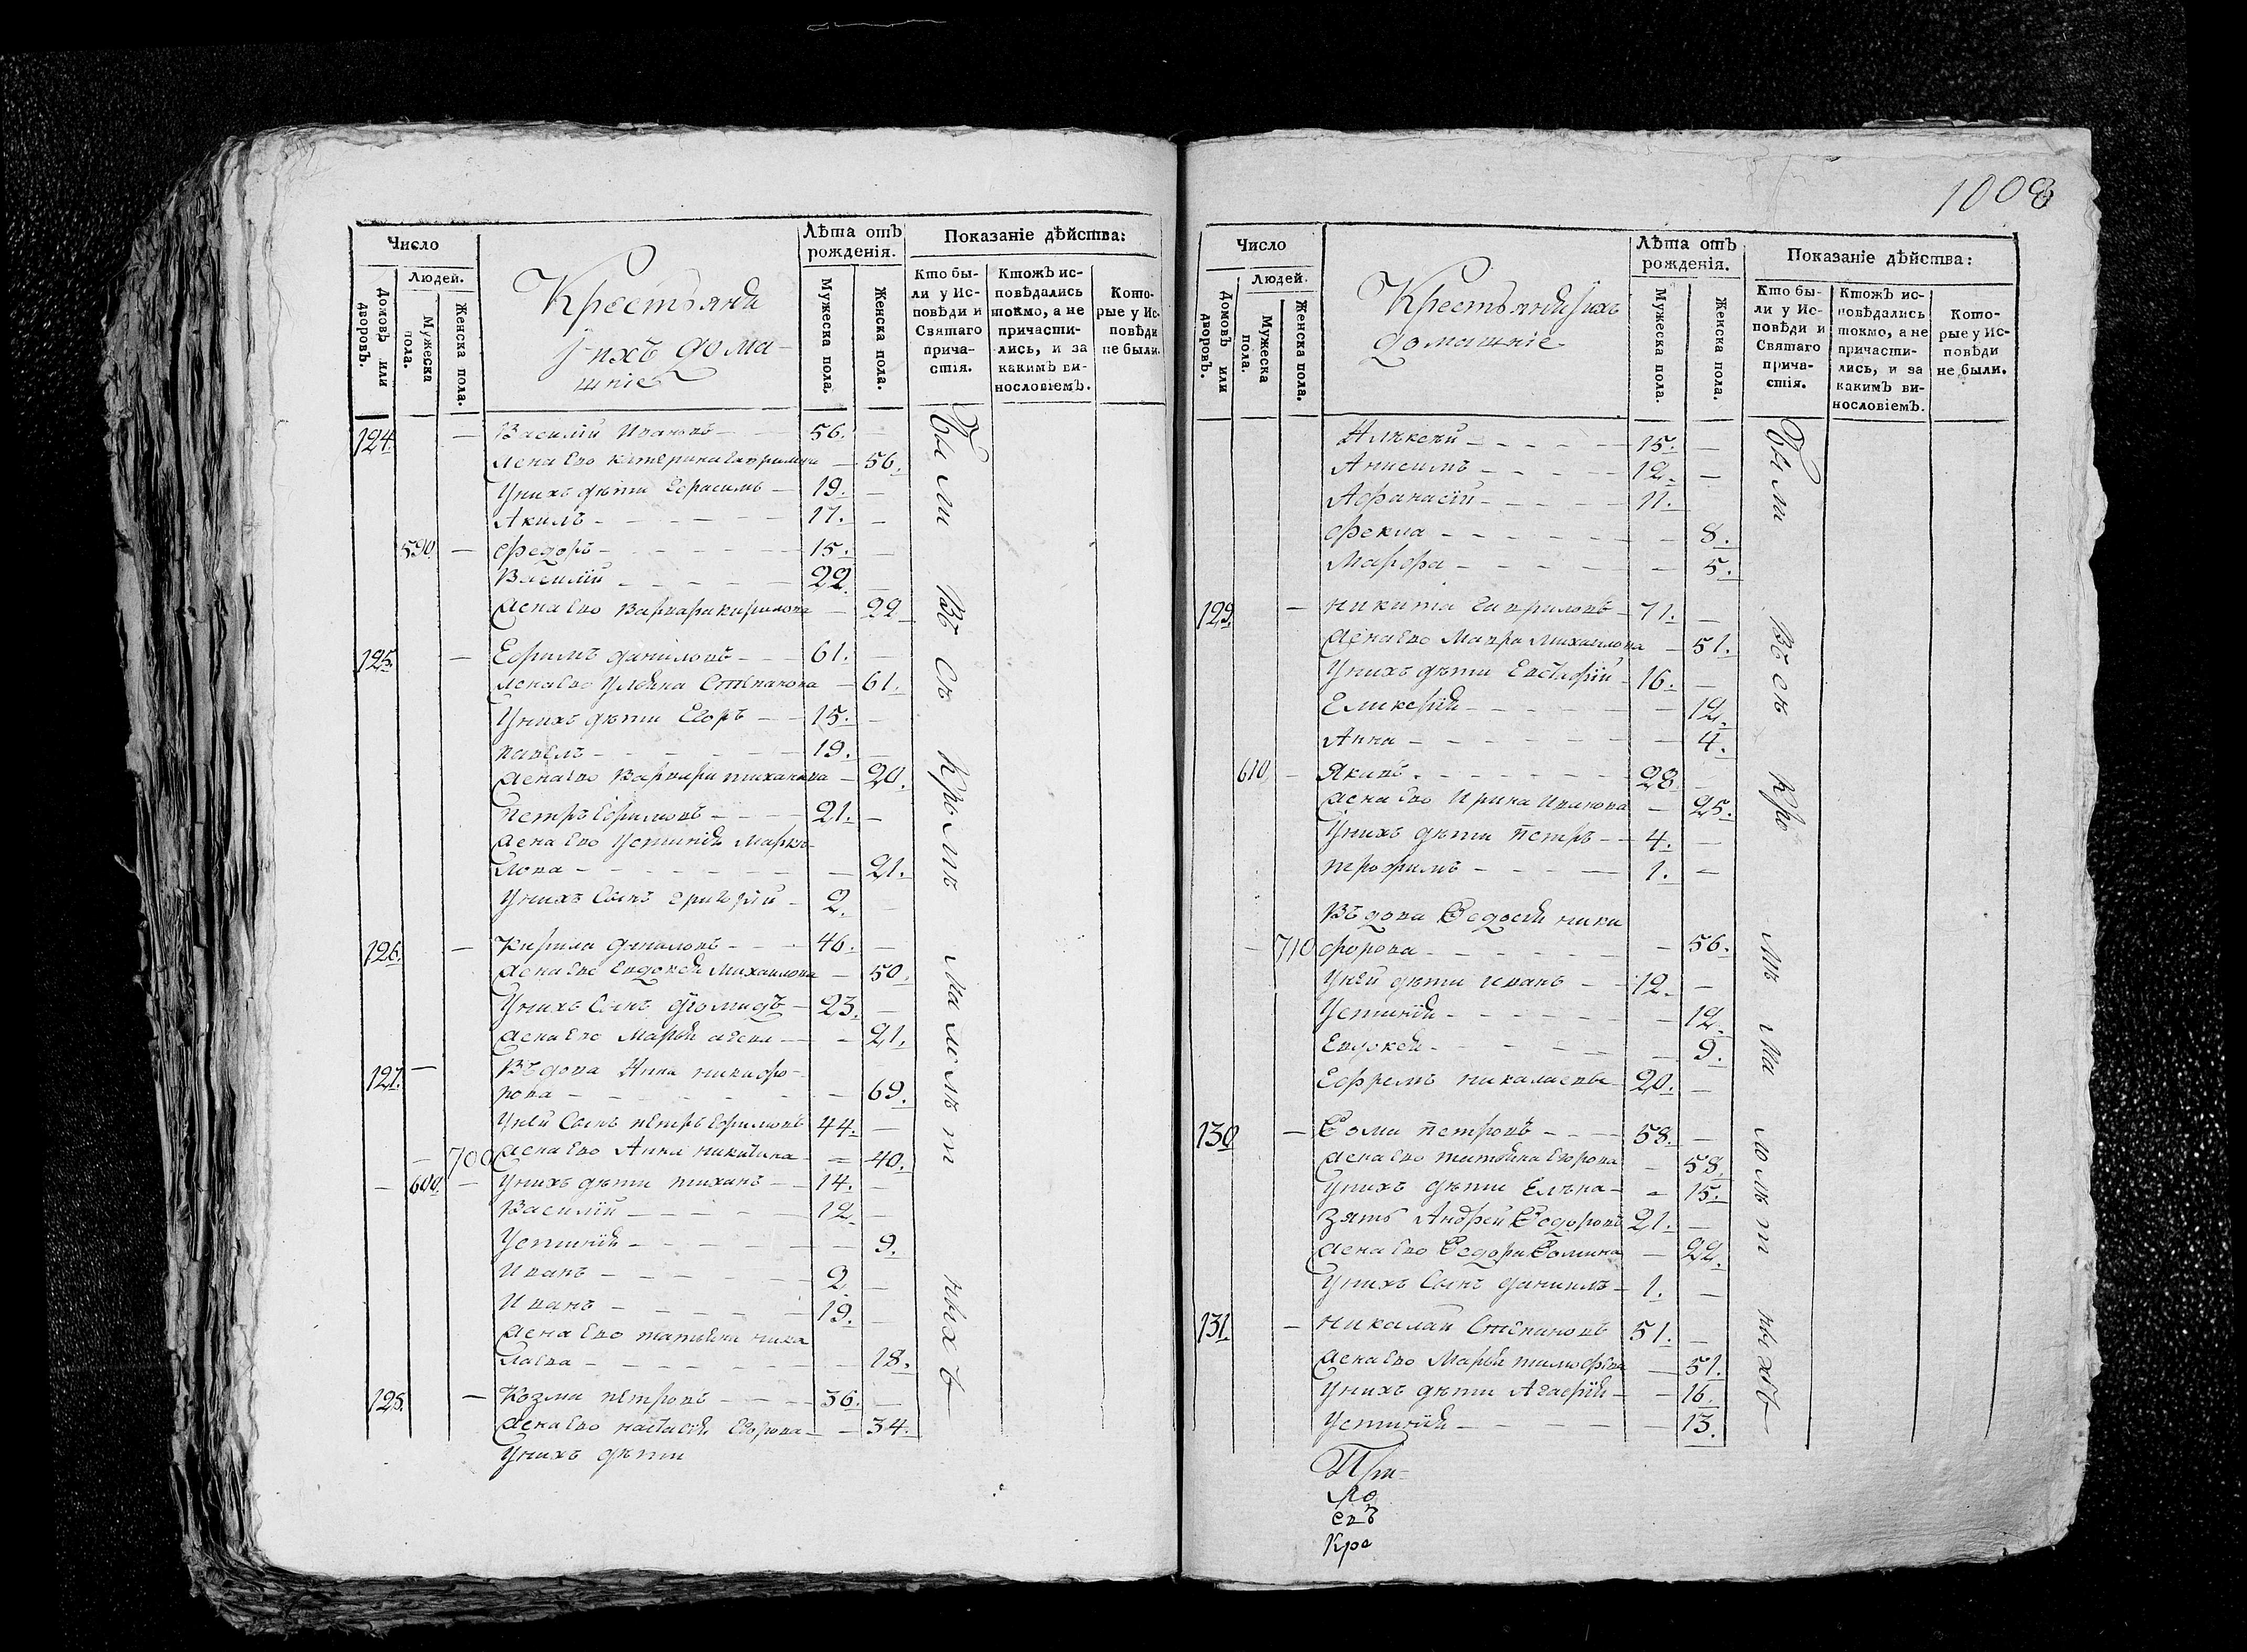 Число
Людей.
Домовъ или дворовъ.
Мужеска пола.
Женска пола.
Крестьяня
и ихъ дома-
шние
Лѣта отъ рожденія.
Мужеска пола.
Женска пола.
Показаніе дѣйства:
Кто бы-
ли у Ис-
повѣди и
Святаго
прича-
стія.
Ктожъ ис-
повѣдались
токмо, а не
причасти-
лись, и за
какимъ ви-
нословіемъ.
Кото-
рые у Ис-
повѣди
не были.
124. — Василий Иванов — 56. —
Жена Ево Катерина Гаврилова — 56.
У них дѣти Герасимъ — 19. —
Акимъ — 17. —
590 — Федоръ — 15. —
Василий — 22. —
Жена Ево Варвара Кирилова — 22.
125. — Ефримъ Даниловъ — 61. —
Жена Ево Ульяна Степанова — 61.
У нихъ дѣти Егоръ — 15. —
Павелъ — 19. —
Жена Ево Варвара — 20.
Петръ Ефримовъ — 21. —
Жена Ево Устиния Марке-
лова — 21.
У нихъ Сынъ Григорий — 2. —
126. — Кирила Даниловъ — 46. —
Жена Ево Евдокея Михаилова — 50.
У нихъ Сынъ Диомидъ — 23. —
Жена Ево Марья — 21.
127. — Въдова Анна Никифо-
рова — 69.
У ней Сынъ Петръ Ефримовъ 44. —
700 Жена Ево Анна Никитина — 40.
600. — У нихъ дѣти Тиханъ — 14. —
Василий — 12. —
Устиния — 9.
Иванъ — 2. —
Иванъ — 19. —
Жена Ево Татьяна Нико
лаева — 18.
128. — Козма Петровъ — 36. —
Жена Ево Настасия Егорова — 34.
У нихъ дѣти
Были Всѣ Кромѣ Малолѣтныхъ
1008
Число
Людей.
Домовъ или дворовъ.
Мужеска пола.
Женска пола.
Крестьяня и ихъ
домашние
Лѣта отъ рожденія.
Мужеска пола.
Женска пола.
Показаніе дѣйства:
Кто бы-
ли у Ис-
повѣди и
Святаго
прича-
стія.
Ктожъ ис-
повѣдались
токмо, а не
причасти-
лись, и за
какимъ ви-
нословіемъ.
Кото-
рые у Ис-
повѣди
не были.
Алексей — 15. —
Анисимъ — 12. —
Афанасий — 11. —
Фекла — 8.
Марфа — 5.
129. — Никита Гавриловъ — 71. —
Жена Ево Мавра Михаилова — 51.
У нихъ дѣти Евстафий — 16. —
Гликерия — 12.
Анна — 4.
610 — Яковъ — 28. —
Жена Ево Ирина Иванова — 25.
У нихъ дѣти Петръ — 4. —
Трофимъ — 1. —
Въдова Федосия Ники
710 форова — 56.
У ней дѣти Иванъ — 12. —
Устиния — 12.
Евдокея — 9.
Ефремъ Николаевъ — 20. —
130 — Фома Петровъ — 58. —
Жена Ево Татьяна Егорова — 58.
У нихъ дѣти Елена — 15.
Зять Андрей Федоровъ 21. —
Жена Ево Федора Фомина — 22.
У нихъ Сынъ Даниилъ — 1. —
131. — Николай Степановъ 51. —
Жена Ево Марья Тимофѣева — 51.
У нихъ дѣти Агафия — 16.
Устиния — 13.
Были Всѣ Кро мѣ Ма лолѣтныхъ
Кро